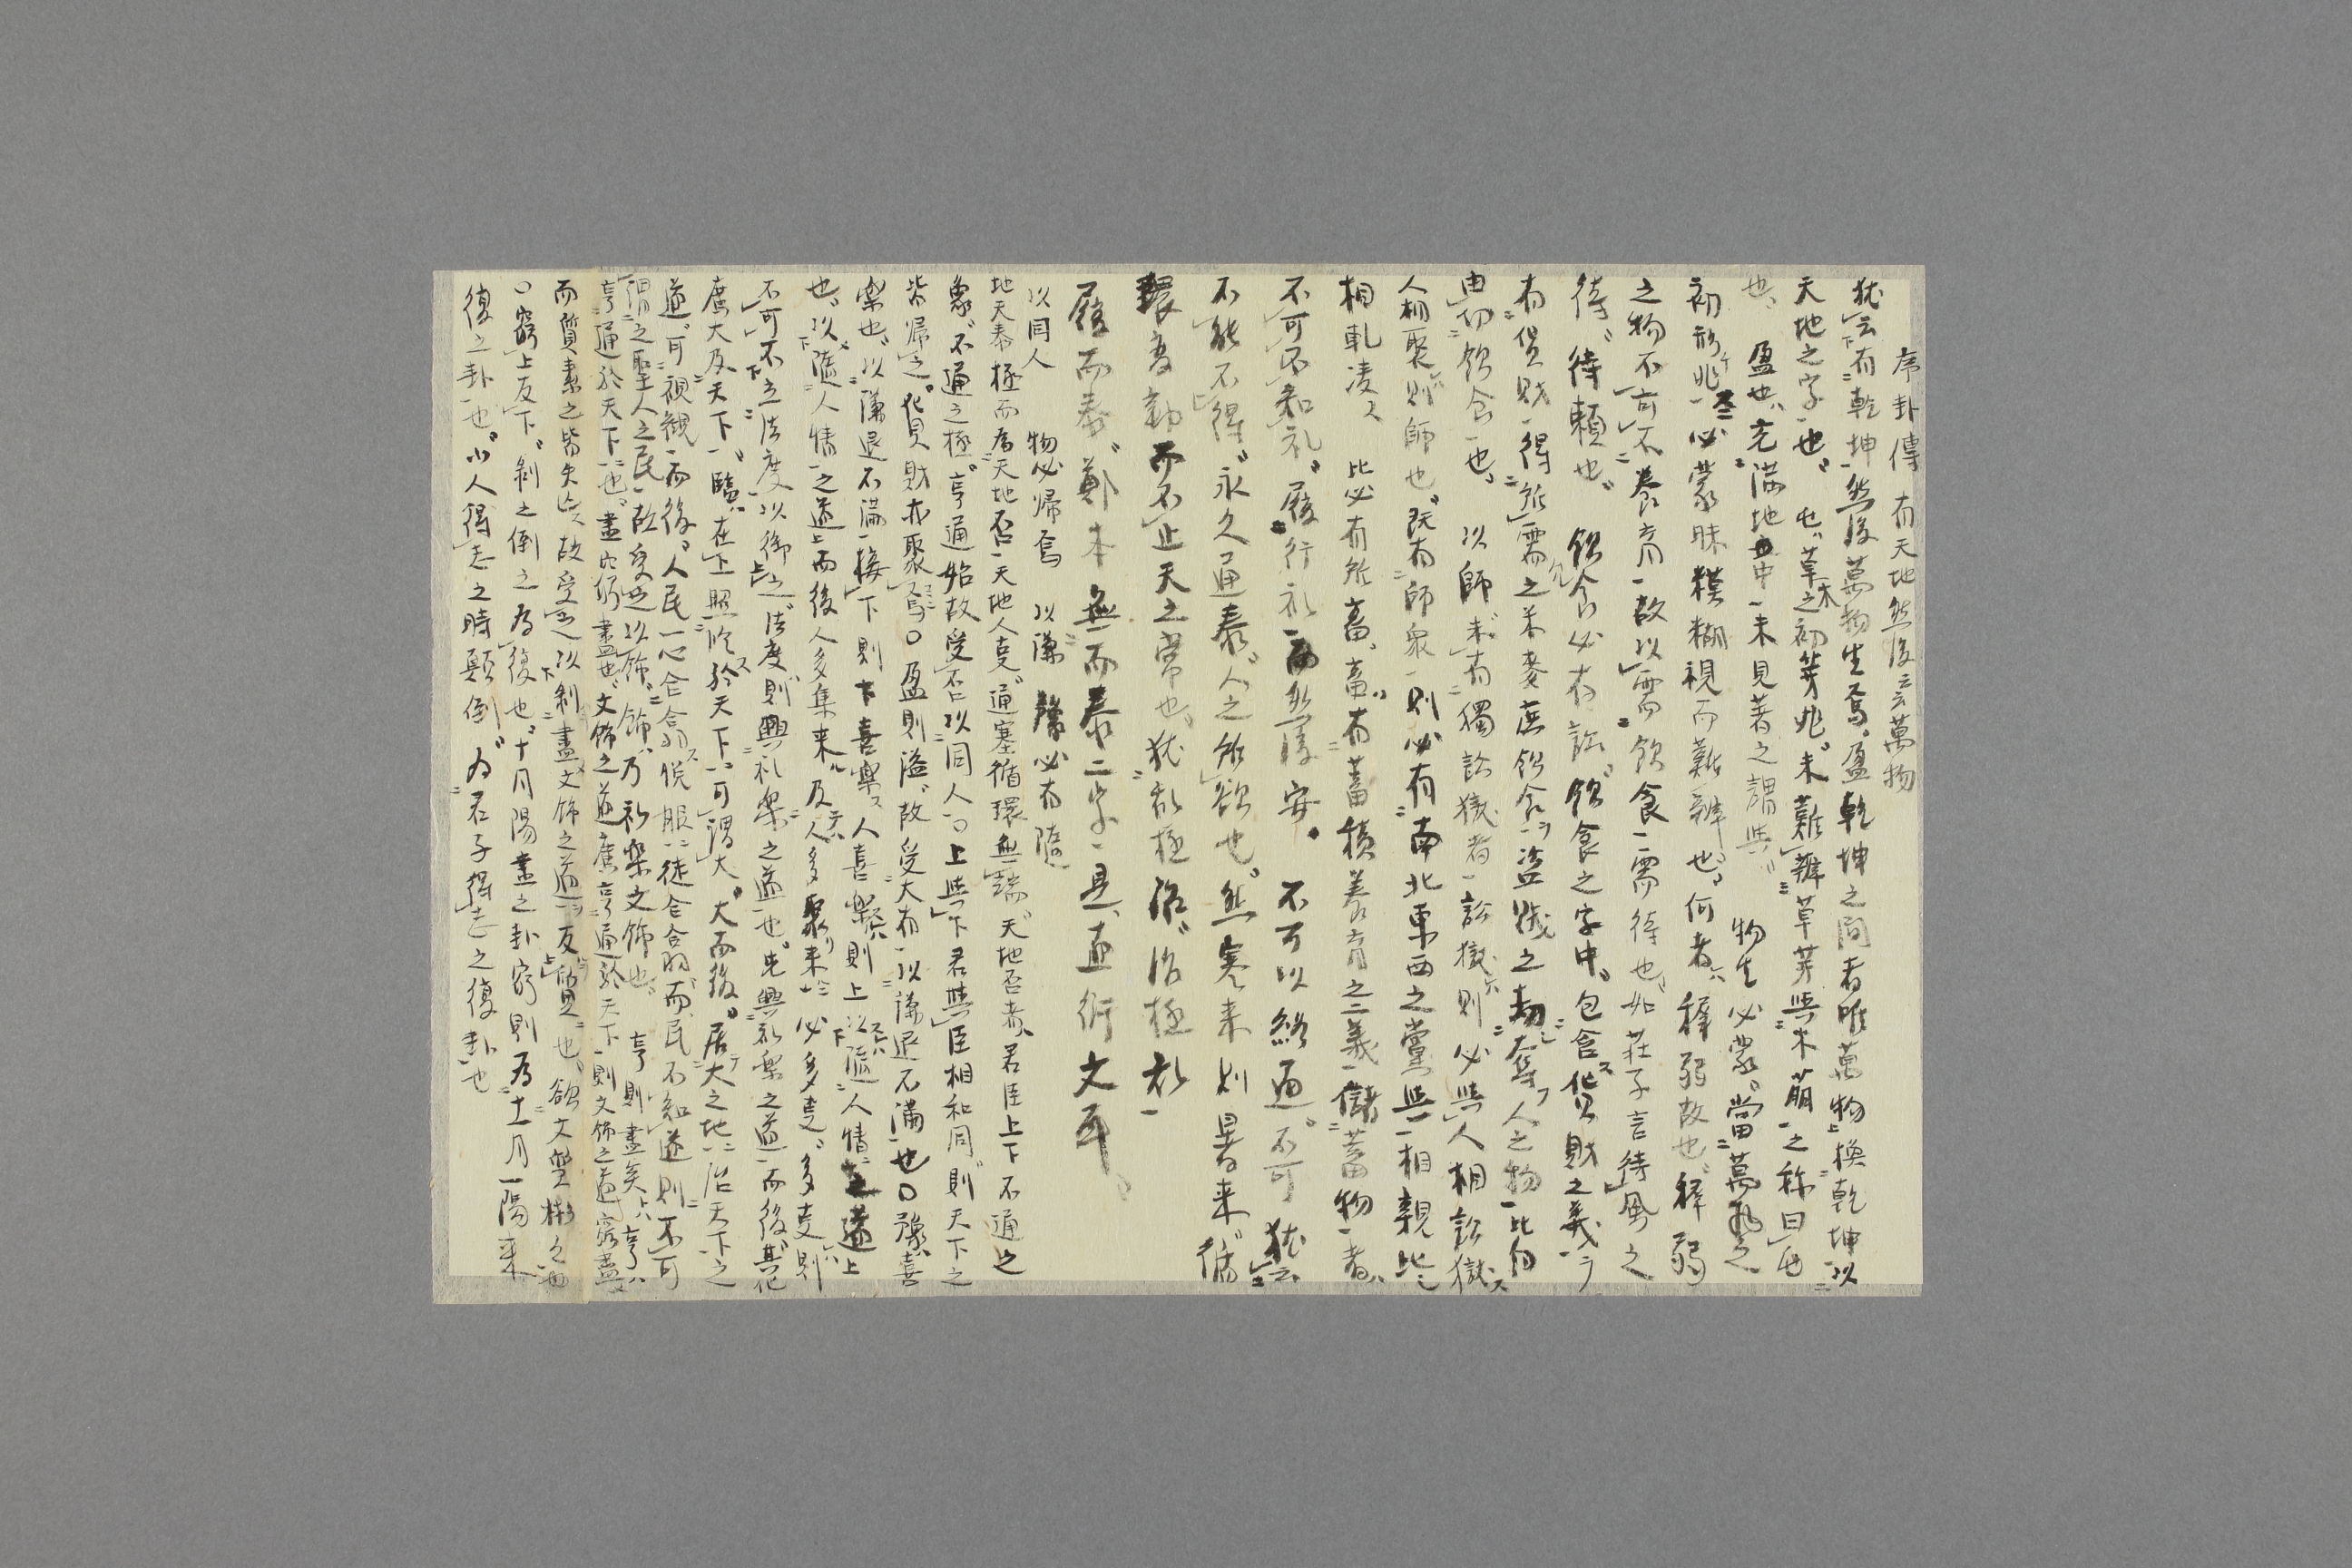 序卦傳 有天地然後云云萬物
犹云有乾坤然後萬物生焉盈乾坤之間者唯萬物換乾坤以
天地之字也 屯草木之初芽兆未難辨草芽与木萠之称曰屯
也 盈也充滿地中未見著之謂与 物生必蒙當萬
初形兆必蒙昧糢糊視而難辨也何者稺弱故也稺弱
之物不可不養育故以需飲食需待也如荘子言待風之
待待頼也 飲食必有訟飲食之字中包含貨財之義
有貨財得所需之米麥庶飲食盗賊之劫奪人之物比自
由飲食也 以師未有獨訟獄者訟獄則必与人相訟獄
人相聚則師也既有師衆則必有南北東西之黨与相親比
相軋凌 比必有所畜畜有蓄積養育之二義儲蓄物者
不可不知礼履行礼而然後安 不可以終通不可犹云
不能不得永久通泰人之所欲也然寒来則暑来循
環变動而不止天之常也犹乱極治治極乱
履而泰鄭本無而泰二字是直衍文耳
以同人 物必帰焉 以謙 豫必有隨
地天泰極而為天地否天地人变通塞循環無端天地否者君臣上下不通之
象不通之極亨通始故受否以同人○上与下君与臣相和同則天下之
皆帰之貨財亦聚焉○盈則溢故受大有以謙退不滿也○豫喜
楽也以謙退不滿接下則下喜楽人喜楽則上以隨人情之道上
也以隨人情之道上而後人多集来及人多聚来必多变多变則
不可不立法度以御之法度則興礼楽之道也先興礼楽之道而後其化
廣大及天下臨在上照臨於天下可謂大大而後居大之地治天下之
道可視觀而後人民一心合翕悦服徒合合而民不知遂則不可
謂之聖人之民故受之以飾飾乃礼楽文飾也 亨則盡矣亨
亨通於天下也盡亡窮盡也文飾之道廣亨通於天下則文飾之道窮盡
而質素之皆失矣故受之以剥盡文飾之道反質也欲文質彬々也
○窮上反下剥之倒之為復也十月陽盡之卦窮則為十一月一陽来
復之卦也小人得志之時顛倒為君子得志之復卦也